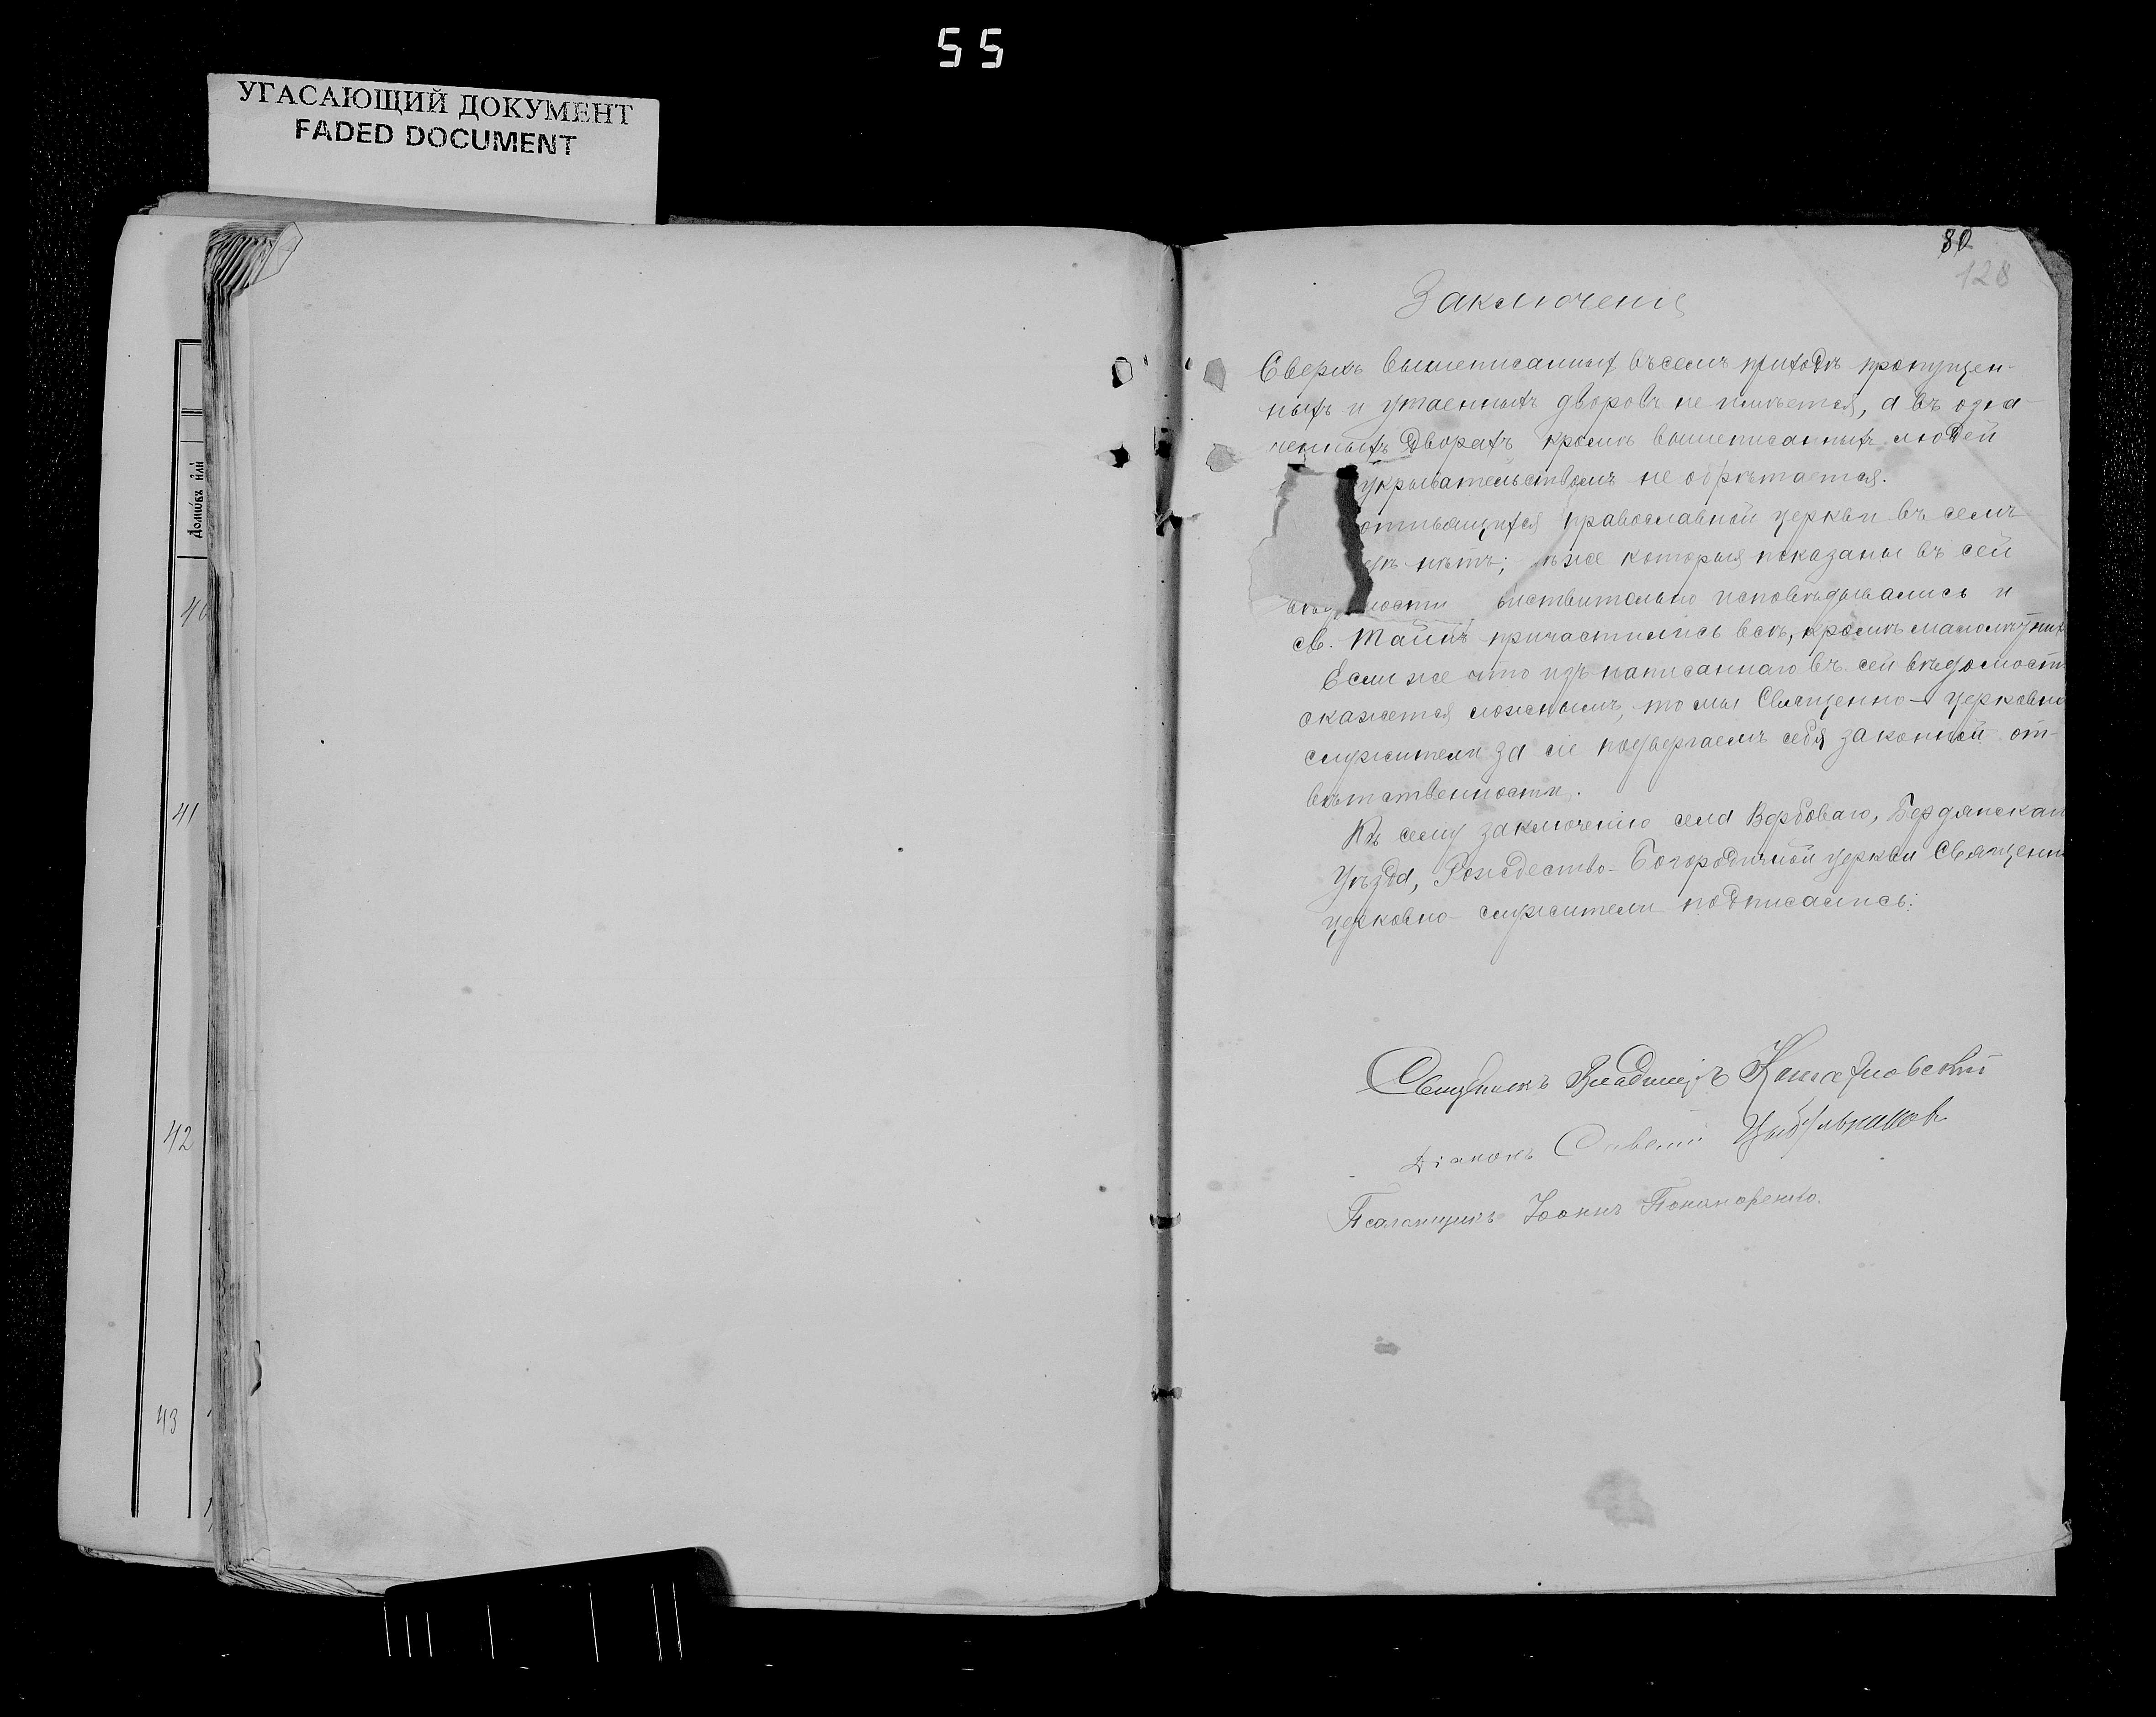 55
УГАСАЮЩИЙ ДОКУМЕНТ
FADED DOCUMENT
80
128
Заключеніе
Сверхъ вышеписанныхъ въ семъ приходѣ пропущен-
ныхъ и утаенныхъ дворовъ не имѣется, а въ озна-
ченныхъ дворахъ кромѣ вышеписанныхъ людей
укрывательствомъ не обрѣтается.
православной церкви въ семъ
нѣтъ; которыя показаны въ сей
исповѣдывались и
св. Таинъ причастились всѣ, кромѣ малолѣтних
Если же что изъ написаннаго въ сей вѣдомости
окажется ложнымъ, то мы Священно- церковно
служители за сіе подвергаемъ себя законной от-
вѣтственности.
Къ сему заключенію села Вербоваго, Бердянскаго
Уѣзда, Рождество-Богородичной церкви Священно
церковно-служители подписались:
Священникъ Владиміръ
Діаконъ Савелій
Псаломщикъ Іоаннъ Пономаренко.
Домѡвъ или
40
41
42
43